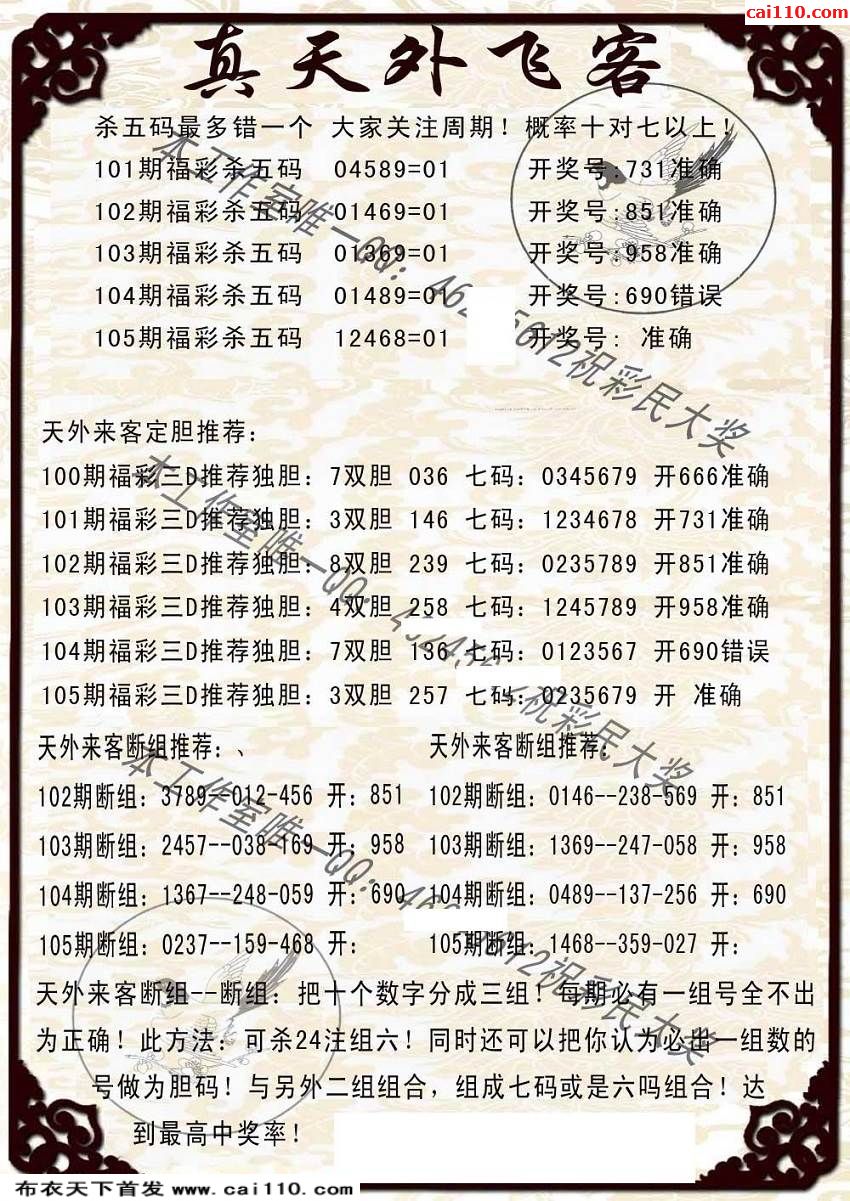 cai110.com
真天外飞客
杀五码最多错一个 大家关注周期！概率十对七以上！
101期福彩杀五码 04589=01 开奖号:731准确
102期福彩杀五码 01469=01 开奖号:851准确
103期福彩杀五码 01369=01 开奖号:958准确
104期福彩杀五码 01489=01 开奖号:690错误
105期福彩杀五码 12468=01 开奖号: 准确
天外来客定胆推荐：
100期福彩三D推荐独胆：7双胆 036 七码：0345679 开666准确
101期福彩三D推荐独胆：3双胆 146 七码：1234678 开731准确
102期福彩三D推荐独胆：8双胆 239 七码：0235789 开851准确
103期福彩三D推荐独胆：4双胆 258 七码：1245789 开958准确
104期福彩三D推荐独胆：7双胆 136 七码：0123567 开690错误
105期福彩三D推荐独胆：3双胆 257 七码：0235679 开 准确
天外来客断组推荐：、 天外来客断组推荐：
102期断组：3789--012-456 开：851 102期断组：0146--238-569 开：851
103期断组：2457--038-169 开：958 103期断组：1369--247-058 开：958
104期断组：1367--248-059 开：690 104期断组：0489--137-256 开：690
105期断组：0237--159-468 开： 105期断组：1468--359-027 开：
天外来客断组--断组：把十个数字分成三组！每期必有一组号全不出
为正确！此方法：可杀24注组六！同时还可以把你认为必出一组数的
号做为胆码！与另外二组组合，组成七码或是六吗组合！达
到最高中奖率！
本工作室唯一QQ: 祝彩民大奖
本工作室唯一QQ: 祝彩民大奖
本工作室唯一QQ: 祝彩民大奖
布衣天下首发 www.cai110.com